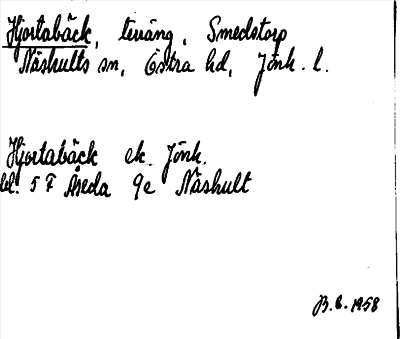 Hjortabäck, terräng, Smedstorp
Näshults sn, Östra hd, Jönk. l.
Hjortabäck ek. Jönk.
bl. 5 F Åseda 9e Näshult
B.L. 1958